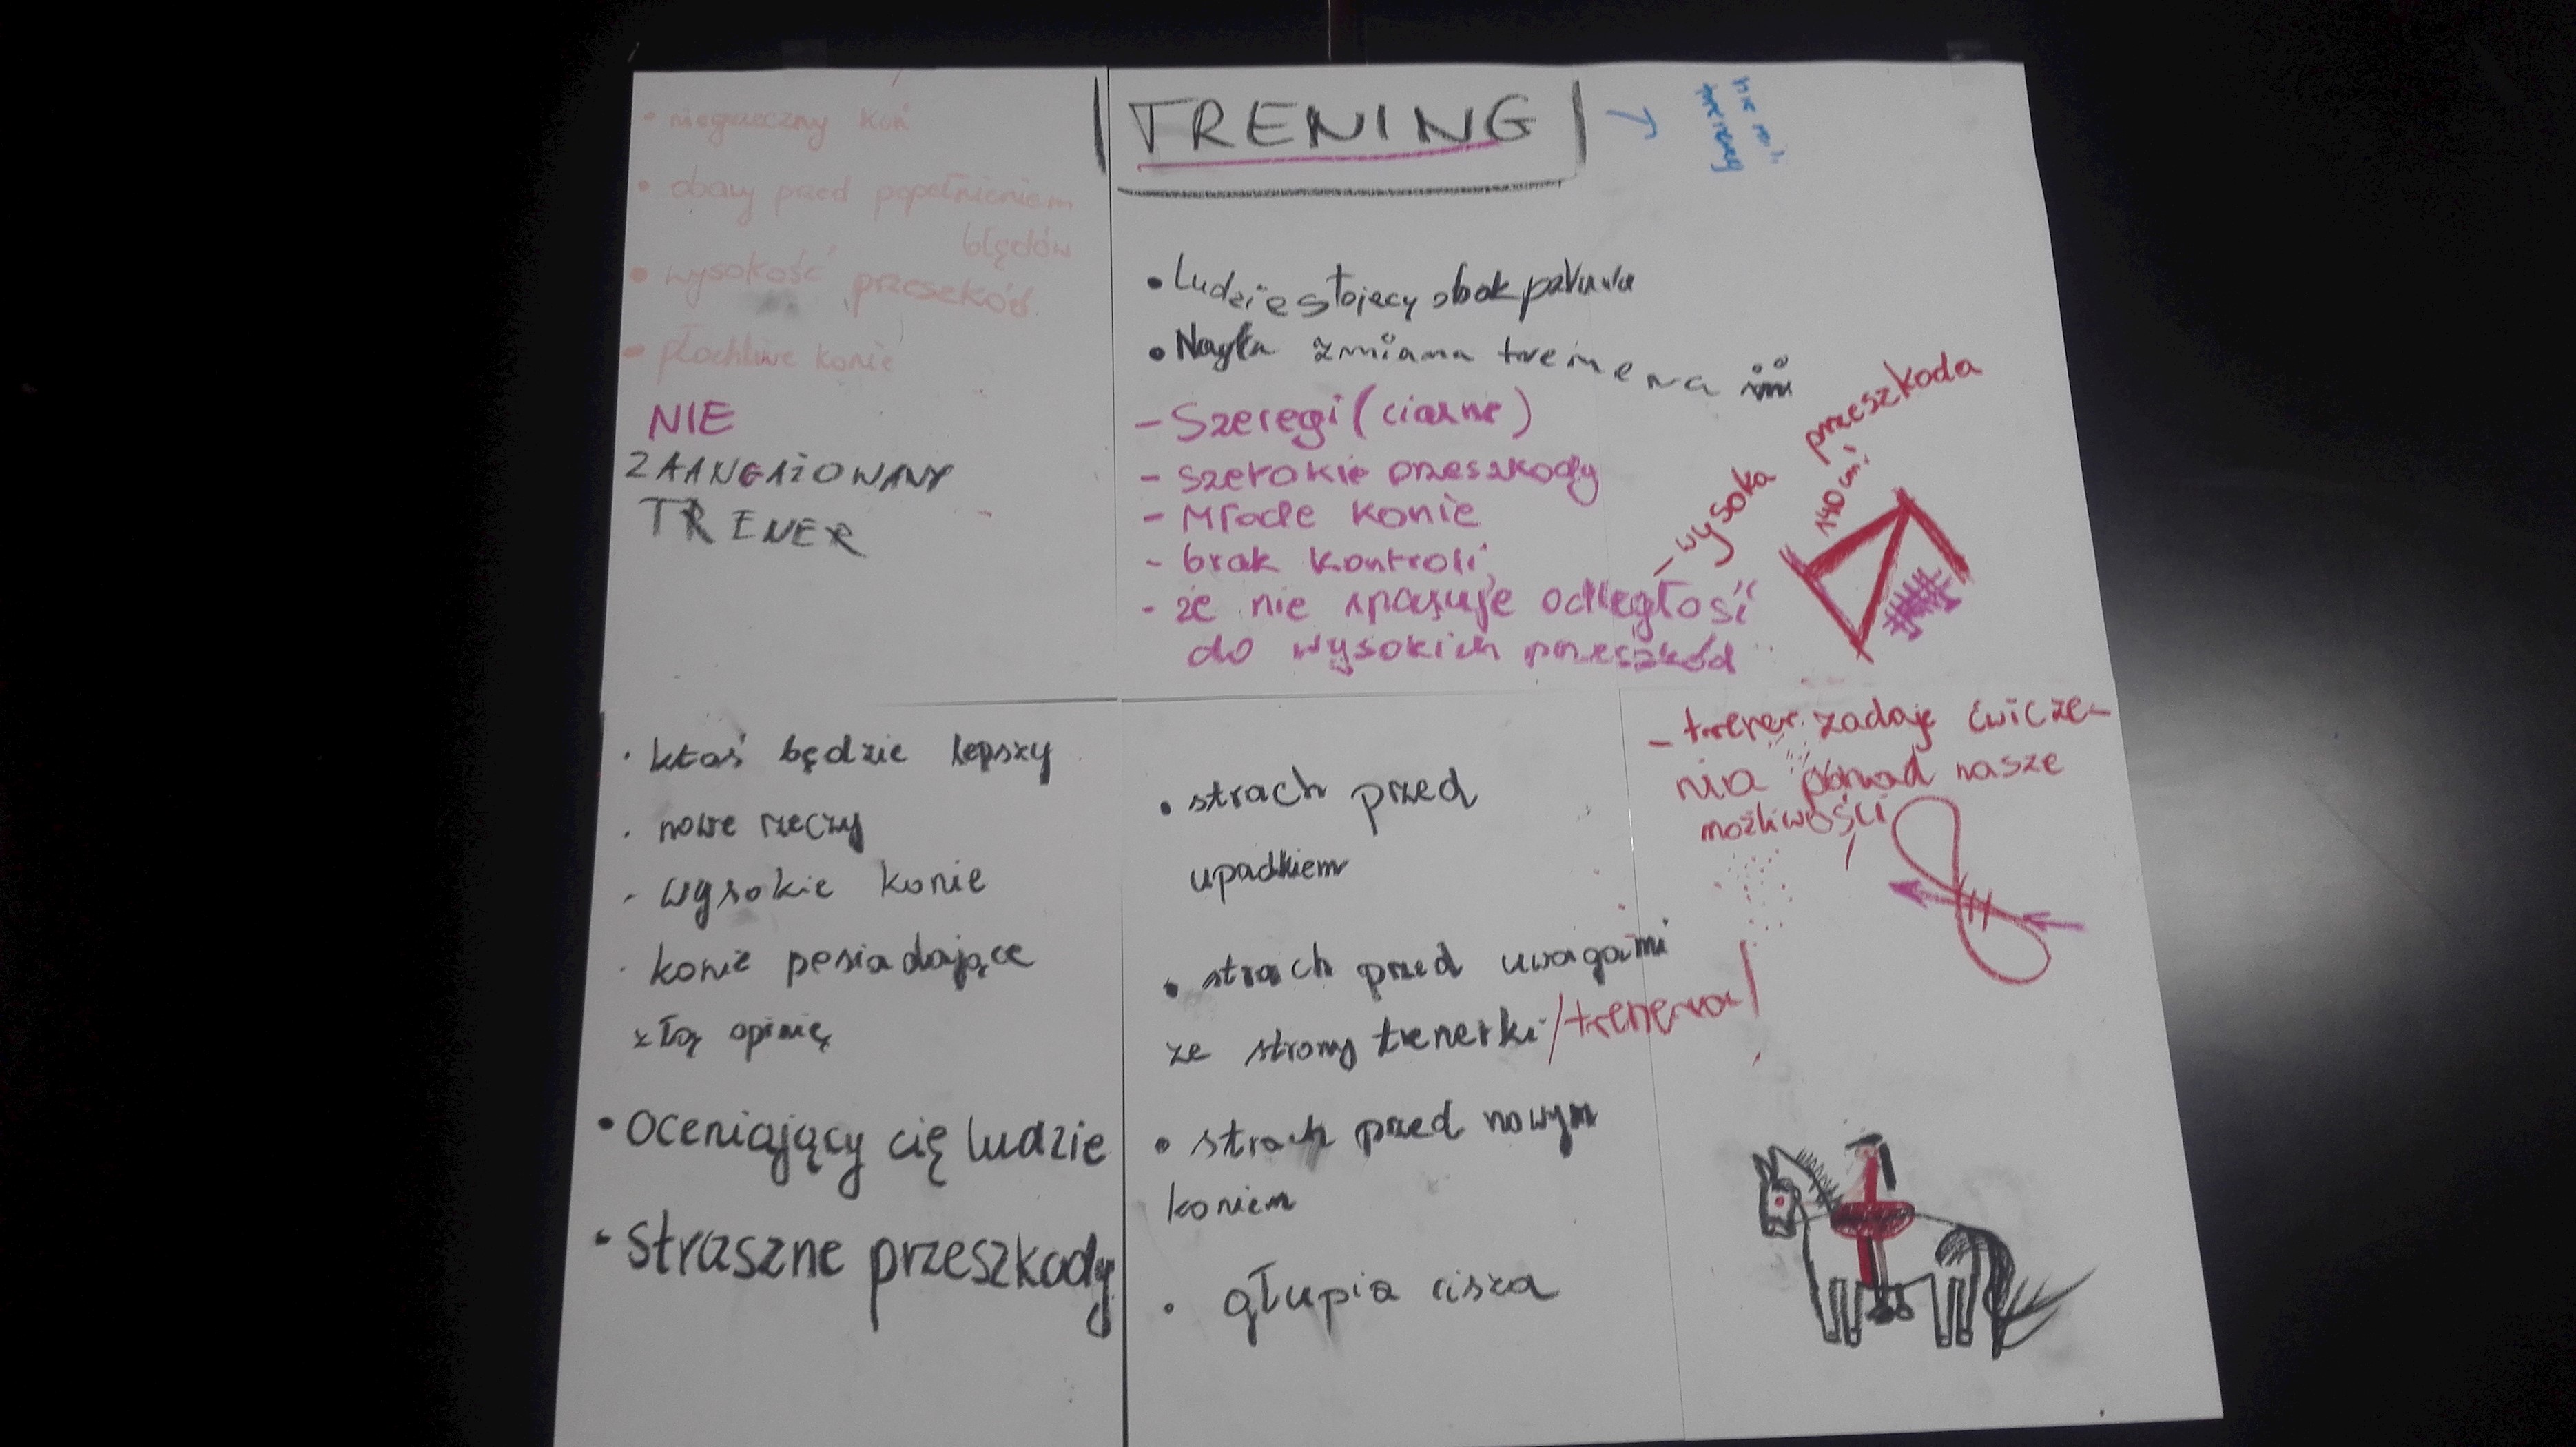 • niegrzeczny koń
• obawy przed popełnieniem
błędów
• wysokość przeszkód
• płochliwe konie
NIE
ZAANGAŻOWANY
TRENER
TRENING
• Ludzie stojący obok
• Nagła zmiana trenera
- Szeregi (ciasne)
- szerokie przeszkody
- Młode konie
- brak kontroli
- że nie spasuje odległość
do wysokich przeszkód
- wysoka przeszkoda
140 cm!
· ktoś będzie lepszy
· nowe rzeczy
- wysokie konie
· konie posiadające
złą opinię
• oceniający cię ludzie
• straszne przeszkody
• strach przed
upadkiem
• strach przed uwagami
ze strony trenerki /trenera/
• strach przed nowym
koniem
• głupia cisza
- trener zadaje ćwicze-
nia ponad nasze
możliwości